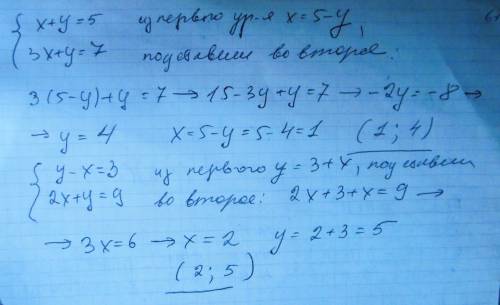 { x+y=5 из первого ур-я x=5-y,
3x+y=7 подставим во второе:
3(5-y)+y=7 → 15-3y+y=7 → -2y=-8 →
→ y=4 x=5-y=5-4=1 (1; 4)
{ y-x=3 из первого y=3+x, подставим
2x+y=9 во второе: 2x+3+x=9 →
→ 3x=6 → x=2 y=2+3=5
(2; 5)